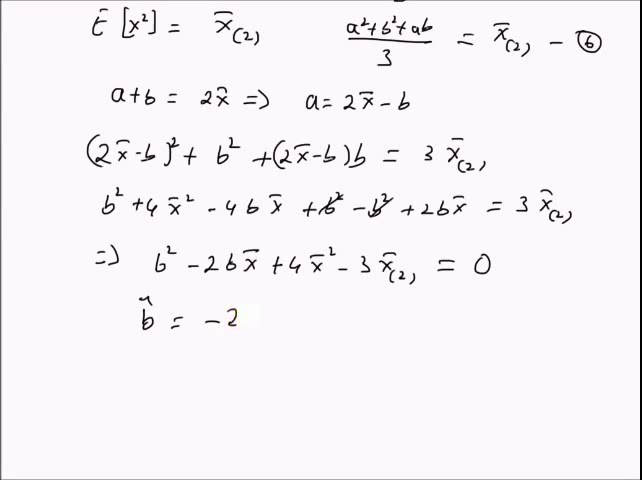 E [x²] = x̄₍₂₎   (a²+b²+ab)/3 = x̄₍₂₎ - ⑥
a+b = 2x̄ => a = 2x̄ - b
(2x̄-b)² + b² + (2x̄-b)b = 3 x̄₍₂₎
b² + 4x̄² - 4bx̄ + b² - b² + 2bx̄ = 3 x̄₍₂₎
=> b² - 2bx̄ + 4x̄² - 3x̄₍₂₎ = 0
b̂ = -2